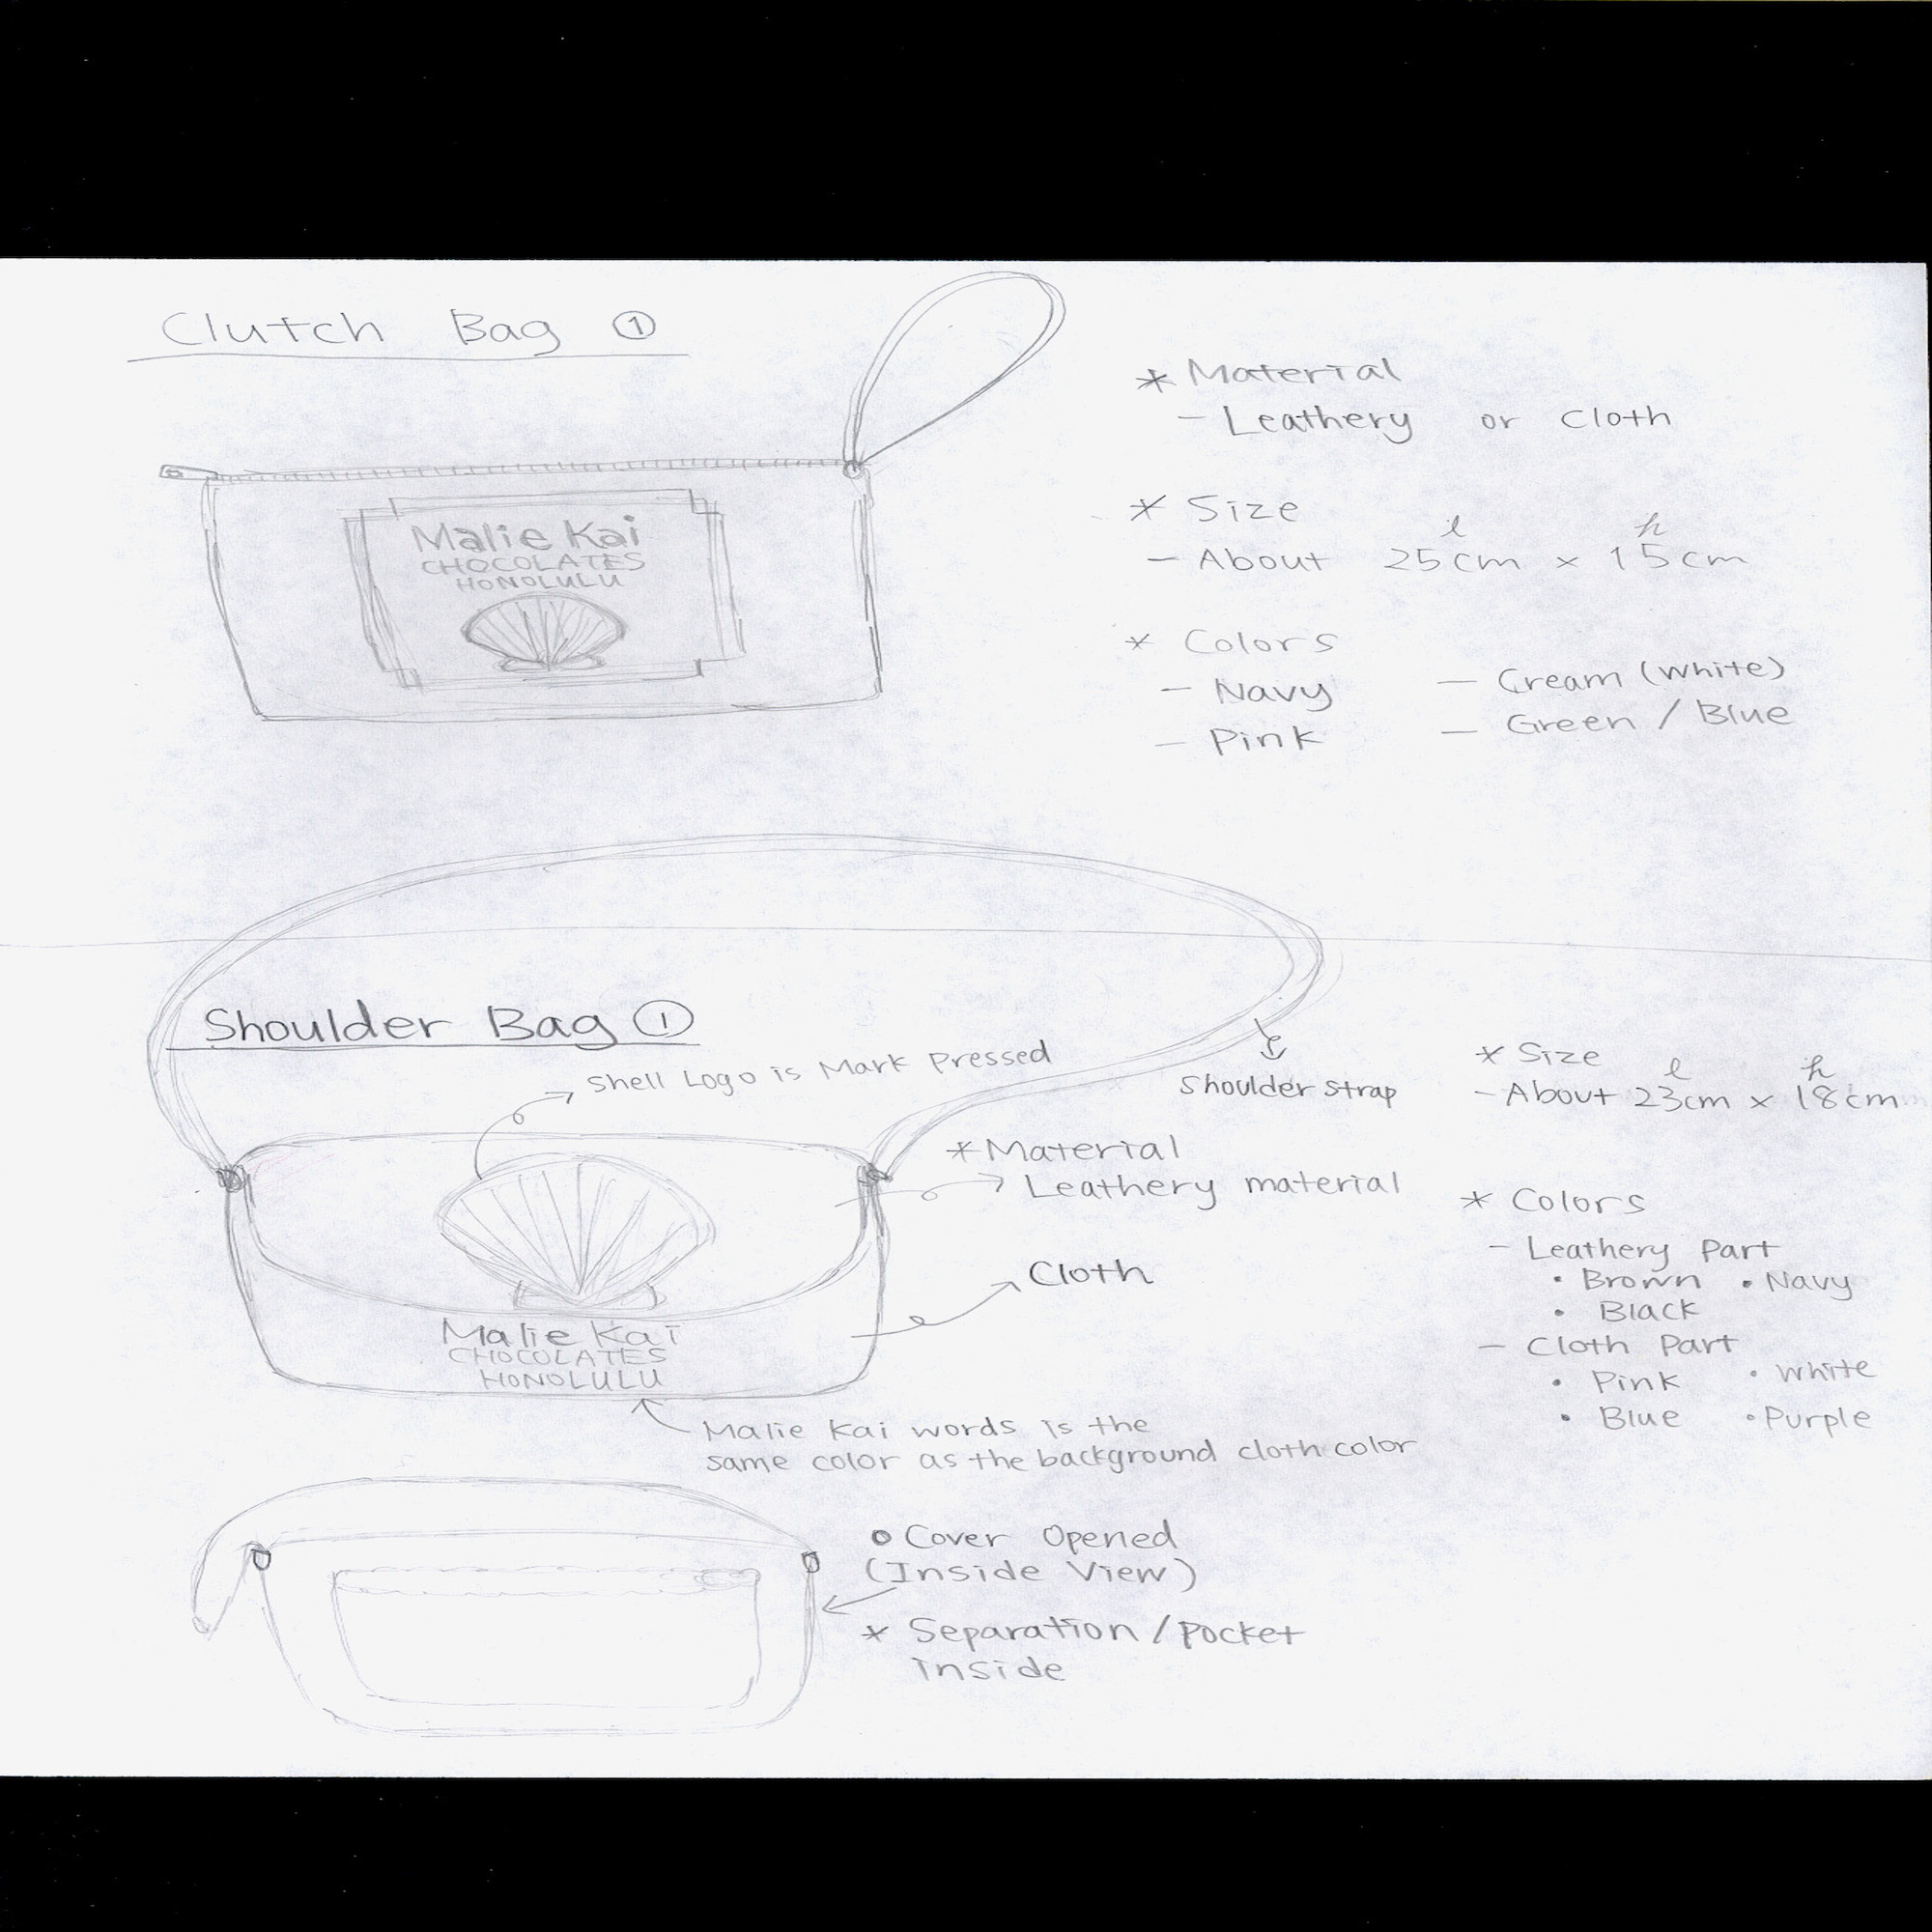 Clutch Bag ①
Malie Kai
CHOCOLATES
HONOLULU
* Material
- Leathery or Cloth
* Size
l h
- About 25cm x 15cm
* Colors
- Navy - Cream (White)
- Pink - Green / Blue
Shoulder Bag ①
Shell Logo is Mark Pressed
Shoulder strap
* Material
Leathery material
Cloth
Malie Kai
CHOCOLATES
HONOLULU
Malie Kai words is the
same color as the background cloth color
* Size
l h
- About 23cm x 18cm
* Colors
- Leathery Part
• Brown • Navy
• Black
- Cloth Part
• Pink • White
• Blue • Purple
• Cover Opened
(Inside View)
* Separation / Pocket
Inside